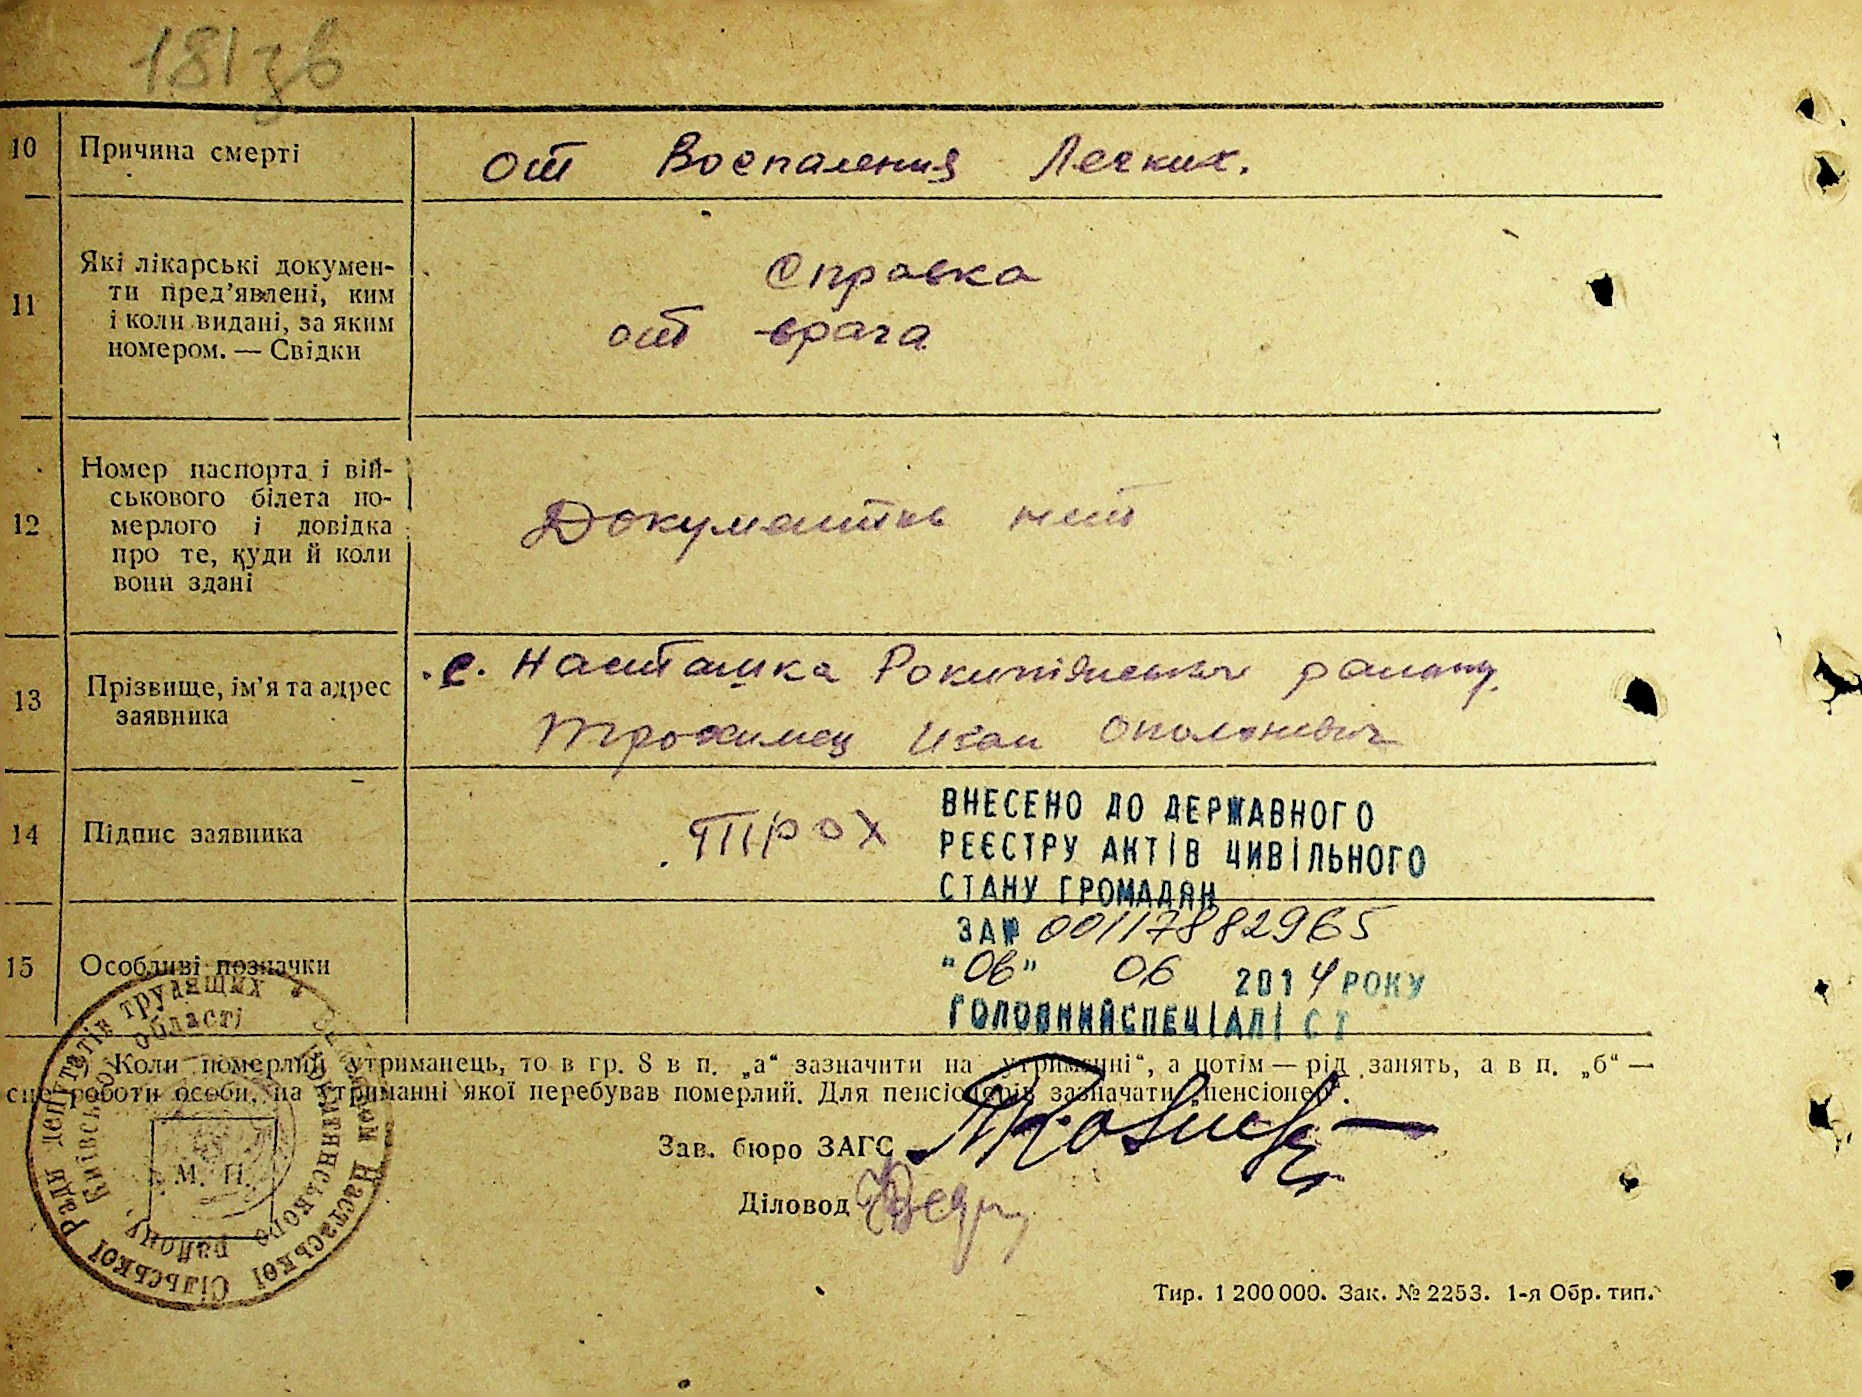 181зв
10 Причина смерті от Воспаления Легких.
11 Які лікарські докумен-
ти пред'явлені, ким
і коли видані, за яким
номером. — Свідки
Справка
от врача
12 Номер паспорта і вій-
ськового білета по-
мерлого і довідка
про те, куди й коли
вони здані
Документов нет
13 Прізвище, ім'я та адрес
заявника
с. Насташка Рокитнянського району.
Трохимец Иван
14 Підпис заявника Трох
ВНЕСЕНО ДО ДЕРЖАВНОГО
РЕЄСТРУ АКТІВ ЦИВІЛЬНОГО
СТАНУ ГРОМАДЯН
ЗА№ 00117882965
"06" 06 2014 РОКУ
ГОЛОВНИЙ СПЕЦІАЛІСТ
15 Особливі позначки
Коли померлий утриманець, то в гр. 8 в п. „а“ зазначити на утриманні“, а потім — рід занять, а в п. „б“ —
сце роботи особи, на утриманні якої перебував померлий. Для пенсіонерів зазначати „пенсіонер“.
Зав. бюро ЗАГС
Діловод
М. П.
Ради депутатів трудящих
Київської області
Рокитнянського району
Настаської Сільської
Тир. 1 200 000. Зак. № 2253. 1-я Обр. тип.